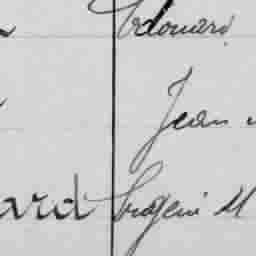 Edouard
Jean
ard Eugène M